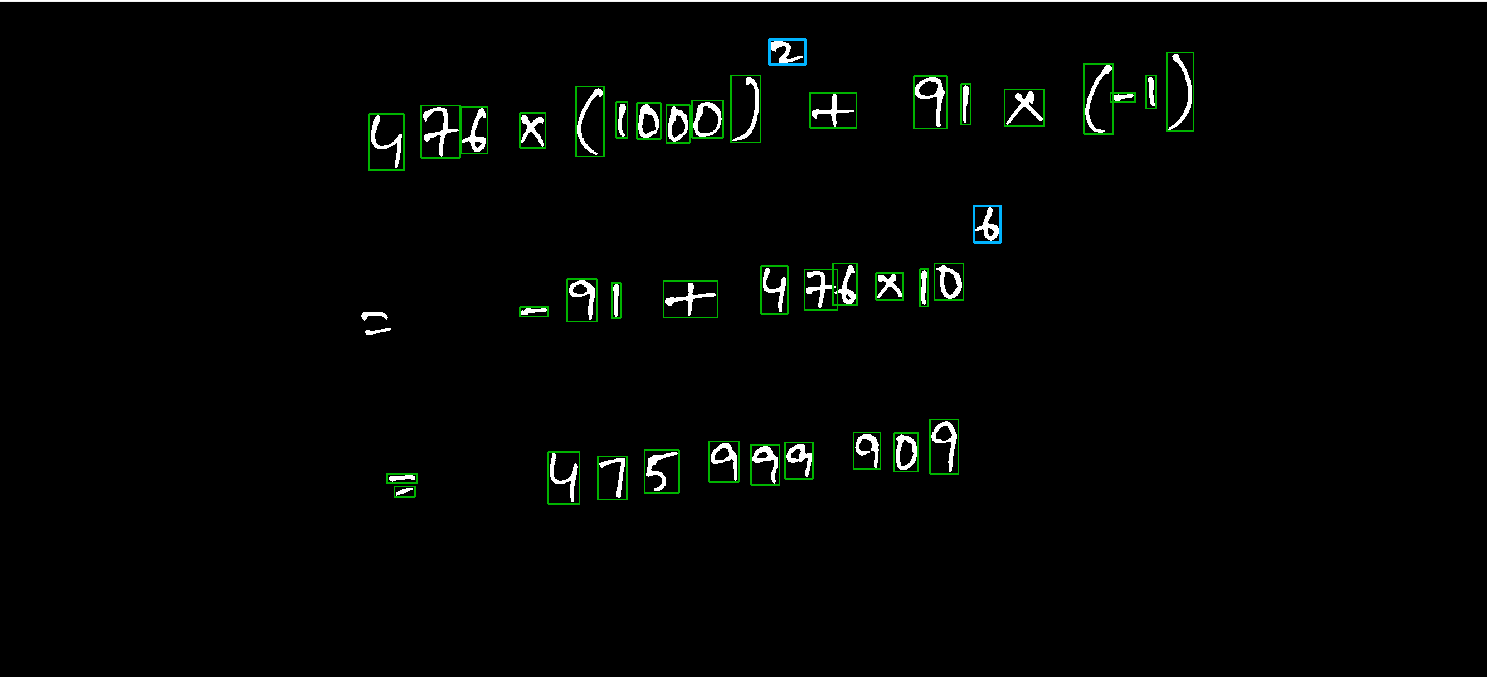 476 × (1000)² + 91 × (-1)
= -91 + 476×10⁶
= 475 999 909